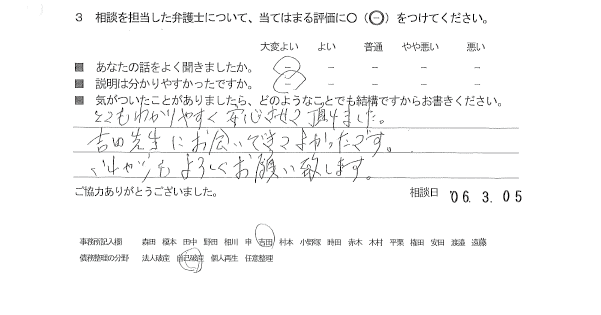 3 相談を担当した弁護士について、当てはまる評価に○(⊖)をつけてください。
大変よい よい 普通 やや悪い 悪い
■ あなたの話をよく聞きましたか。 － － － － －
■ 説明は分かりやすかったですか。 － － － － －
■ 気がついたことがありましたら、どのようなことでも結構ですからお書きください。
とてもわかりやすく安心させて頂けました。
吉田先生にお会いできてよかったです。
よろしくお願い致します。
ご協力ありがとうございました。 相談日 '06. 3. 05
事務所記入欄 森田 榎本 田中 野田 相川 申 吉田 村本 小野塚 時田 赤木 木村 平栗 権田 安田 渡邉 遠藤
債務整理の分野 法人破産 自己破産 個人再生 任意整理